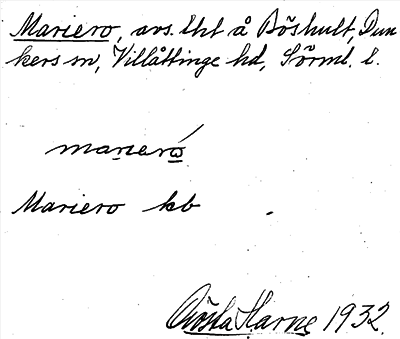 Mariero, avs. lht å Böshult, Dun
kers sn, Villåttinge hd, Sörml. l.
marieró
Mariero kb
Gösta Harne 1932.